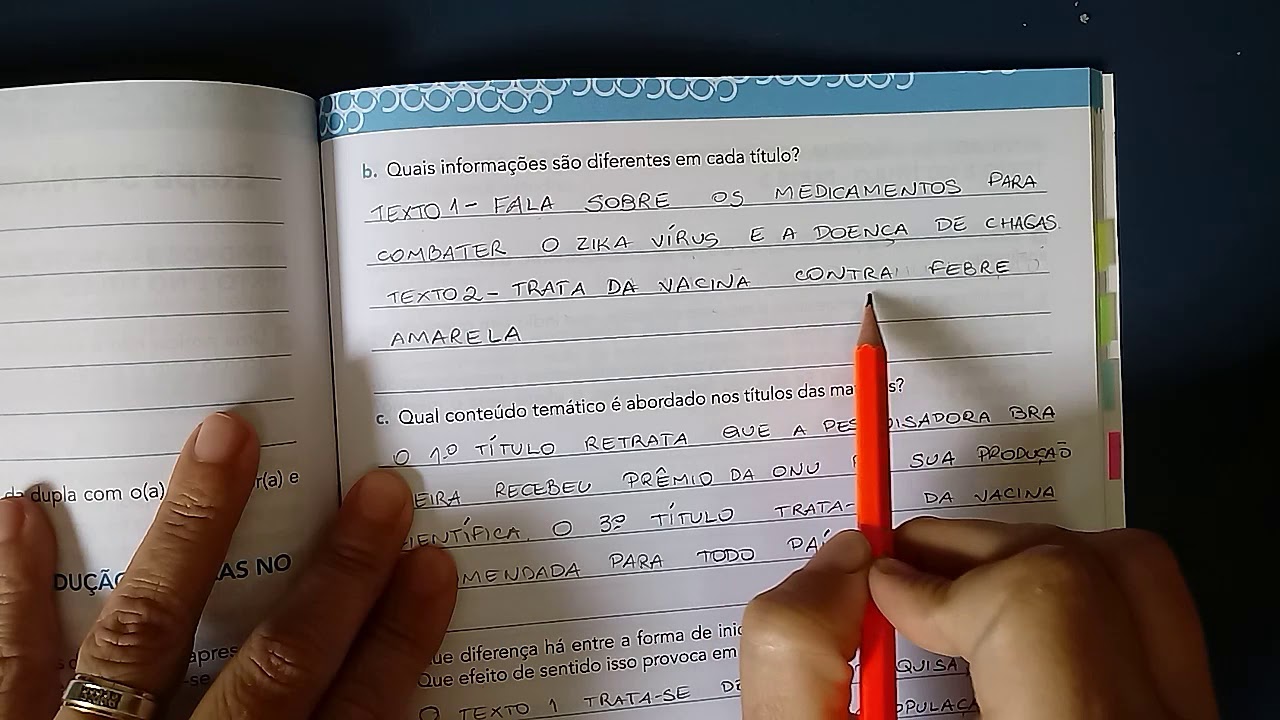 da dupla com o(a)
r(a) e
AS NO
b. Quais informações são diferentes em cada título?
TEXTO 1- FALA SOBRE OS MEDICAMENTOS PARA
COMBATER O ZIKA VÍRUS E A DOENÇA DE CHAGAS
TEXTO 2- TRATA DA VACINA CONTRA FEBRE
AMARELA
c. Qual conteúdo temático é abordado nos títulos das
O 1º TÍTULO RETRATA QUE A BRA
EIRA RECEBEU PRÊMIO DA ONU SUA PRODUÇÃO
O 3º TÍTULO TRATA- DA VACINA
MENDADA PARA TODO
ue diferença há entre a forma de
Que efeito de sentido isso provoca em
O TEXTO 1 TRATA-SE